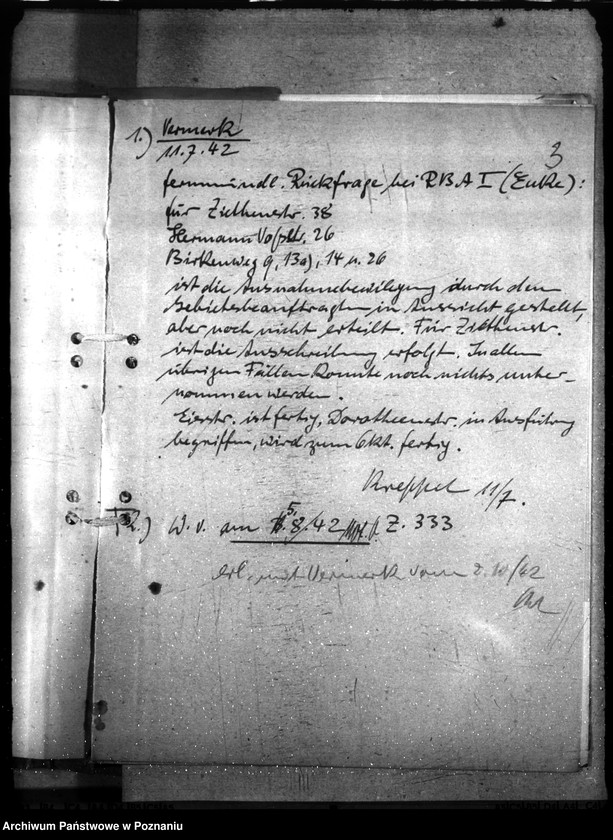 3
1.) Vermerk
11.7.42
fernmündl. Rückfrage bei RBA I (Enke):
für Ziethenstr. 38
Hermann Voßstr. 26
Birkenweg 9, 13a), 14 u. 26
ist die Ausnahmebewilligung durch den
Gebietsbeauftragten in Aussicht gestellt,
aber noch nicht erteilt. Für Ziethenstr.
ist die Ausschreibung erfolgt. In allen
übrigen Fällen konnte noch nichts unter-
nommen werden.
Eierstr. ist fertig, Dorotheenstr. in Ausführung
begriffen, wird zum Okt. fertig.
Kreppel 11/7.
2.) W. v. am 5.8.42 Z. 333
erl. mit Vermerk vom 2.10/42
Archiwum Państwowe w Poznaniu